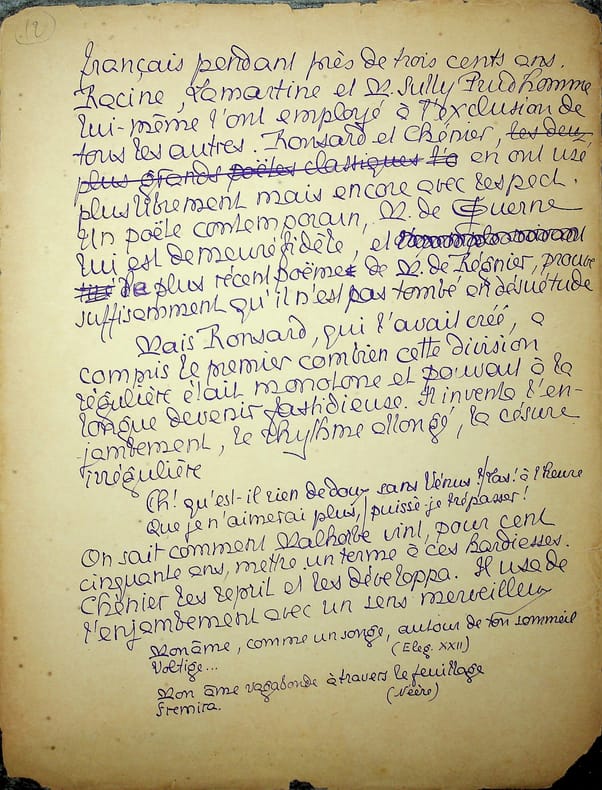 12
français pendant près de trois cents ans.
Racine, Lamartine et M. Sully Prudhomme
lui-même l'ont employé à l'exclusion de
tous les autres. Ronsard et Chénier, les deux
plus grands poëtes classiques l'o en ont usé
plus librement mais encore avec respect.
Un poëte contemporain, M. de Guerne
lui est demeuré fidèle, et
le plus récent poëme de M. de Régnier, prouve
suffisamment qu'il n'est pas tombé en désuétude
Mais Ronsard, qui l'avait créé, a
compris le premier combien cette division
régulière était monotone et pouvait à la
longue devenir fastidieuse. Il invente l'en-
jambement, le rhythme allongé, la césure
irrégulière
Ah! qu'est-il rien de doux sans Vénus? / Las! à l'heure
Que je n'aimerai plus, / puissé-je trépasser!
On sait comment Malherbe vint, pour cent
cinquante ans, mettre un terme à ces hardiesses.
Chénier les reprit et les développa. Il use de
l'enjambement avec un sens merveilleux
Mon âme, comme un songe, autour de ton sommeil
Voltige... (Eleg. XXII)
Mon âme vagabonde à travers le feuillage
Frémira. (Néère)